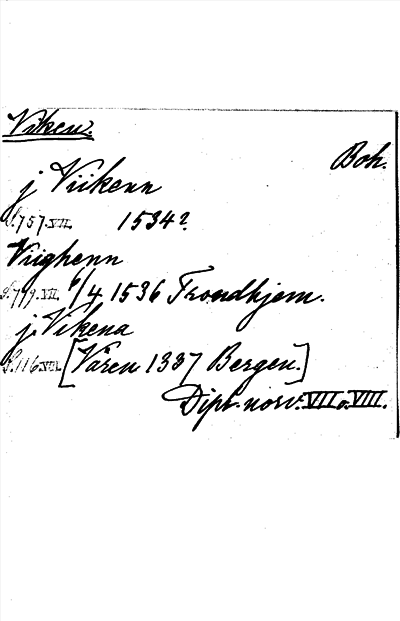 Viken.
Boh.
j Viikenn
S. 757. VII. 1534?
Viighenn
S. 779. VII. 6/4 1536 Trondhjem.
j Vikena
S. 116 VIII. [Våren 1337 Bergen.]
Dipl. norv. VII o. VIII.